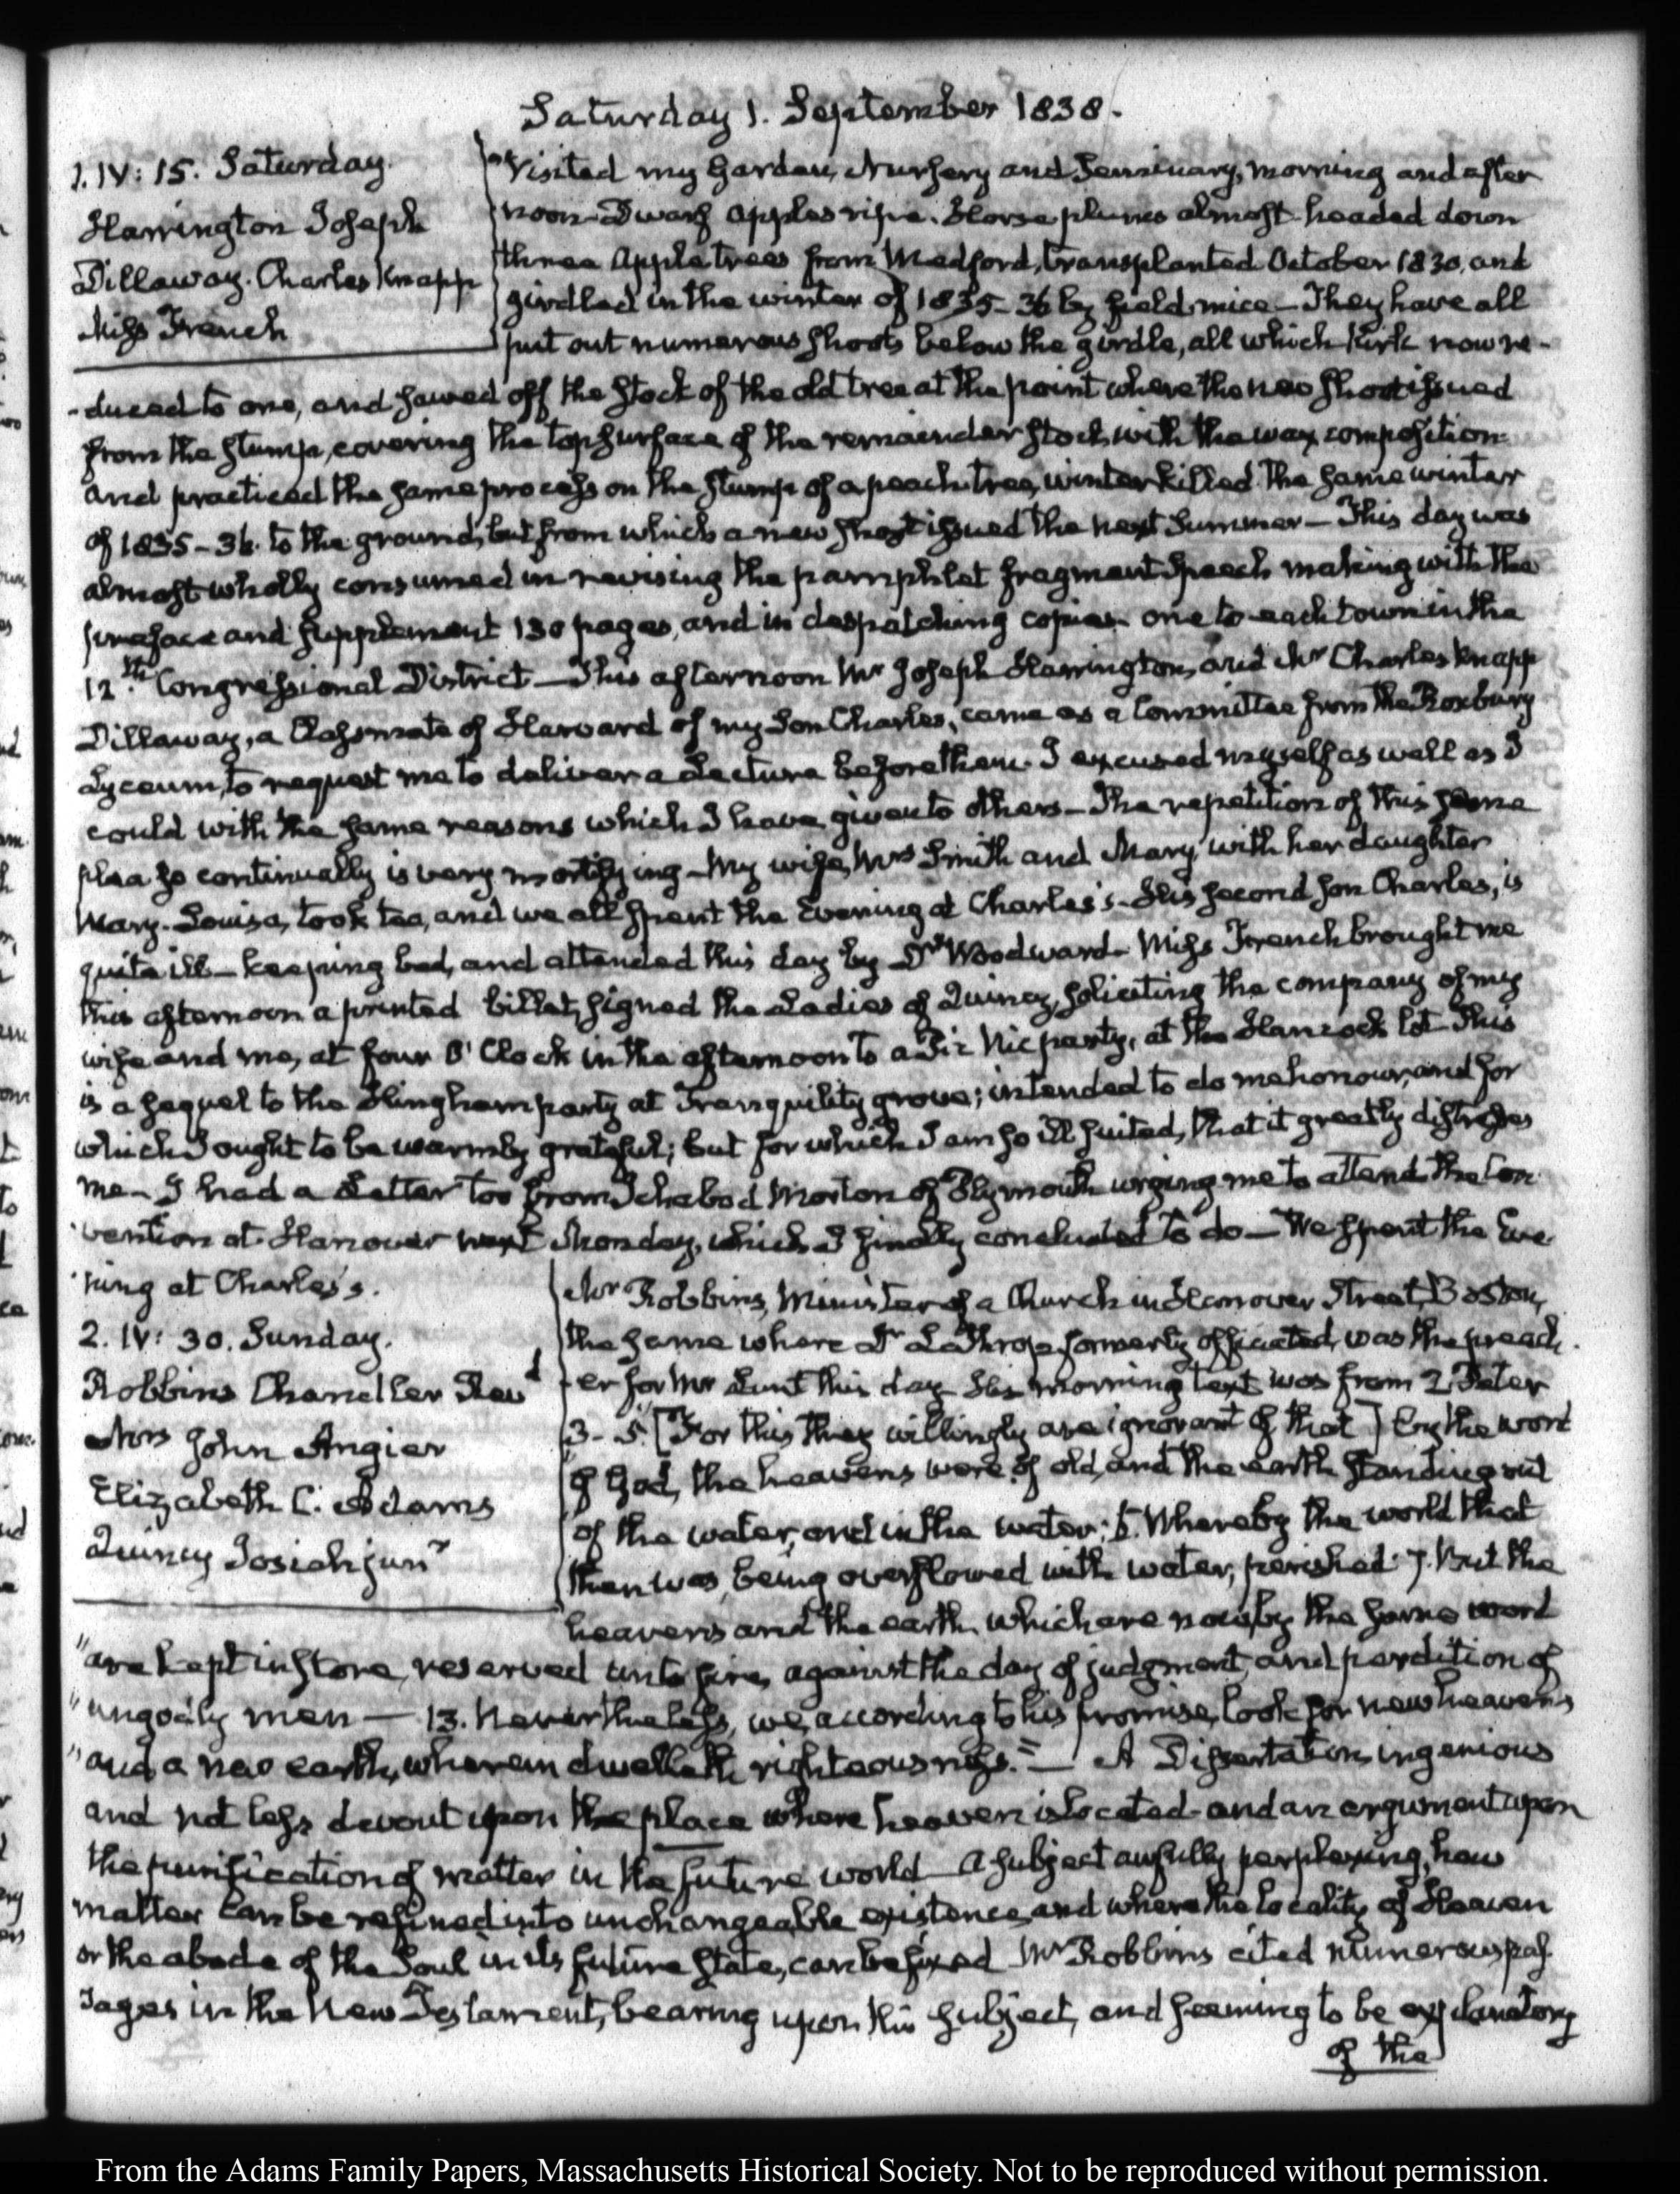 Saturday 1. September 1838.
1. IV: 15. Saturday.
Harrington Joseph
Dillaway. Charles Knapp
Miss French
Visited my Garden, Nursery and Seminary, morning and after
noon. Dwarf apples ripe. Horse plums almost. headed down
three Apple trees from Medford, transplanted October 1830, and
girdled in the winter of 1835-36 by field mice — They have all
put out numerous shoots below the girdle, all which Kirk now re-
-duced to one, and sawed off the stock of the old tree at the point where the new shoot issued
from the stump, covering the top surface of the remainder stock with the wax composition
and practiced the same process on the stump of a peach tree, winter killed the same winter
of 1835-36. to the ground, but from which a new shoot issued the next Summer — This day was
almost wholly consumed in revising the pamphlet fragment Speech making with the
preface and supplement 130 pages, and in despatching copies one to each town in the
12th. Congressional District — This afternoon Mr Joseph Harrington, and Mr Charles Knapp
Dillaway, a Classmate of Harvard of my Son Charles, came as a Committee from the Roxbury
Lyceum, to request me to deliver a Lecture before them. I excused myself as well as I
could with the same reasons which I have given to others — The repetition of this same
plea so continually is very mortifying — My wife, Mrs Smith and Mary, with her daughter
Mary-Louisa, took tea, and we all spent the Evening at Charles's. His second son Charles, is
quite ill — keeping bed, and attended this day by Dr Woodward — Miss French brought me
this afternoon a printed billet, signed the Ladies of Quincy, soliciting the company of my
wife and me, at four O'Clock in the afternoon to a Pic Nic party, at the Hancock lot. This
is a sequel to the Hingham party at Tranquility grove; intended to do me honour, and for
which I ought to be warmly grateful; but for which I am so ill suited, that it greatly distresses
me — I had a Letter too from Ichabod Morton of Plymouth urging me to attend the Con-
vention at Hanover next Monday, which I finally concluded to do — We spent the Eve-
ning at Charles's.
2. IV: 30. Sunday.
Robbins Chandler Revd
Mrs John Angier
Elizabeth C. Adams
Quincy Josiah junr
Mr Robbins, Minister of a Church in Hanover Street, Boston,
the same where Dr Lathrop formerly officiated, was the preach-
-er for Mr Lunt this day. His morning text was from 2 Peter
3. 5. [For this they willingly are ignorant of that] by the word
of God, the heavens were of old, and the earth standing out
of the water, and in the water; 6. Whereby the world that
then was, being overflowed with water, perished 7. But the
heavens and the earth, which are now, by the same word
"are kept in store, reserved unto fire, against the day of judgment, and perdition of
"ungodly men — 13. Nevertheless, we, according to his promise, look for new heavens
"and a new earth, wherein dwelleth righteousness." — A Dissertation, ingenious
and not less devout upon the place where heaven is located — and an argument upon
the purification of matter in the future world — A subject awfully perplexing, how
matter can be refined into unchangeable existence, and where the locality of Heaven
or the abode of the Soul in its future state, can be fixed Mr Robbins cited numerous pas-
sages in the New Testament, bearing upon this subject, and seeming to be explanatory
of the
From the Adams Family Papers, Massachusetts Historical Society. Not to be reproduced without permission.